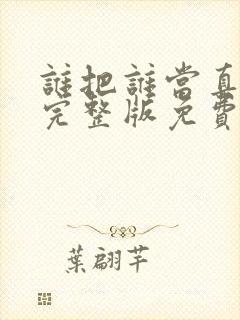 誰把誰當真
完整版免費
葉翩芊